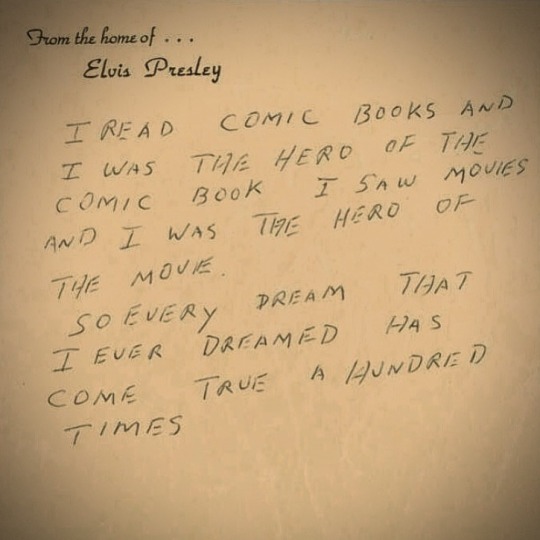 From the home of . . .
Elvis Presley
I READ COMIC BOOKS AND
I WAS THE HERO OF THE
COMIC BOOK I SAW MOVIES
AND I WAS THE HERO OF
THE MOVIE.
SO EVERY DREAM THAT
I EVER DREAMED HAS
COME TRUE A HUNDRED
TIMES